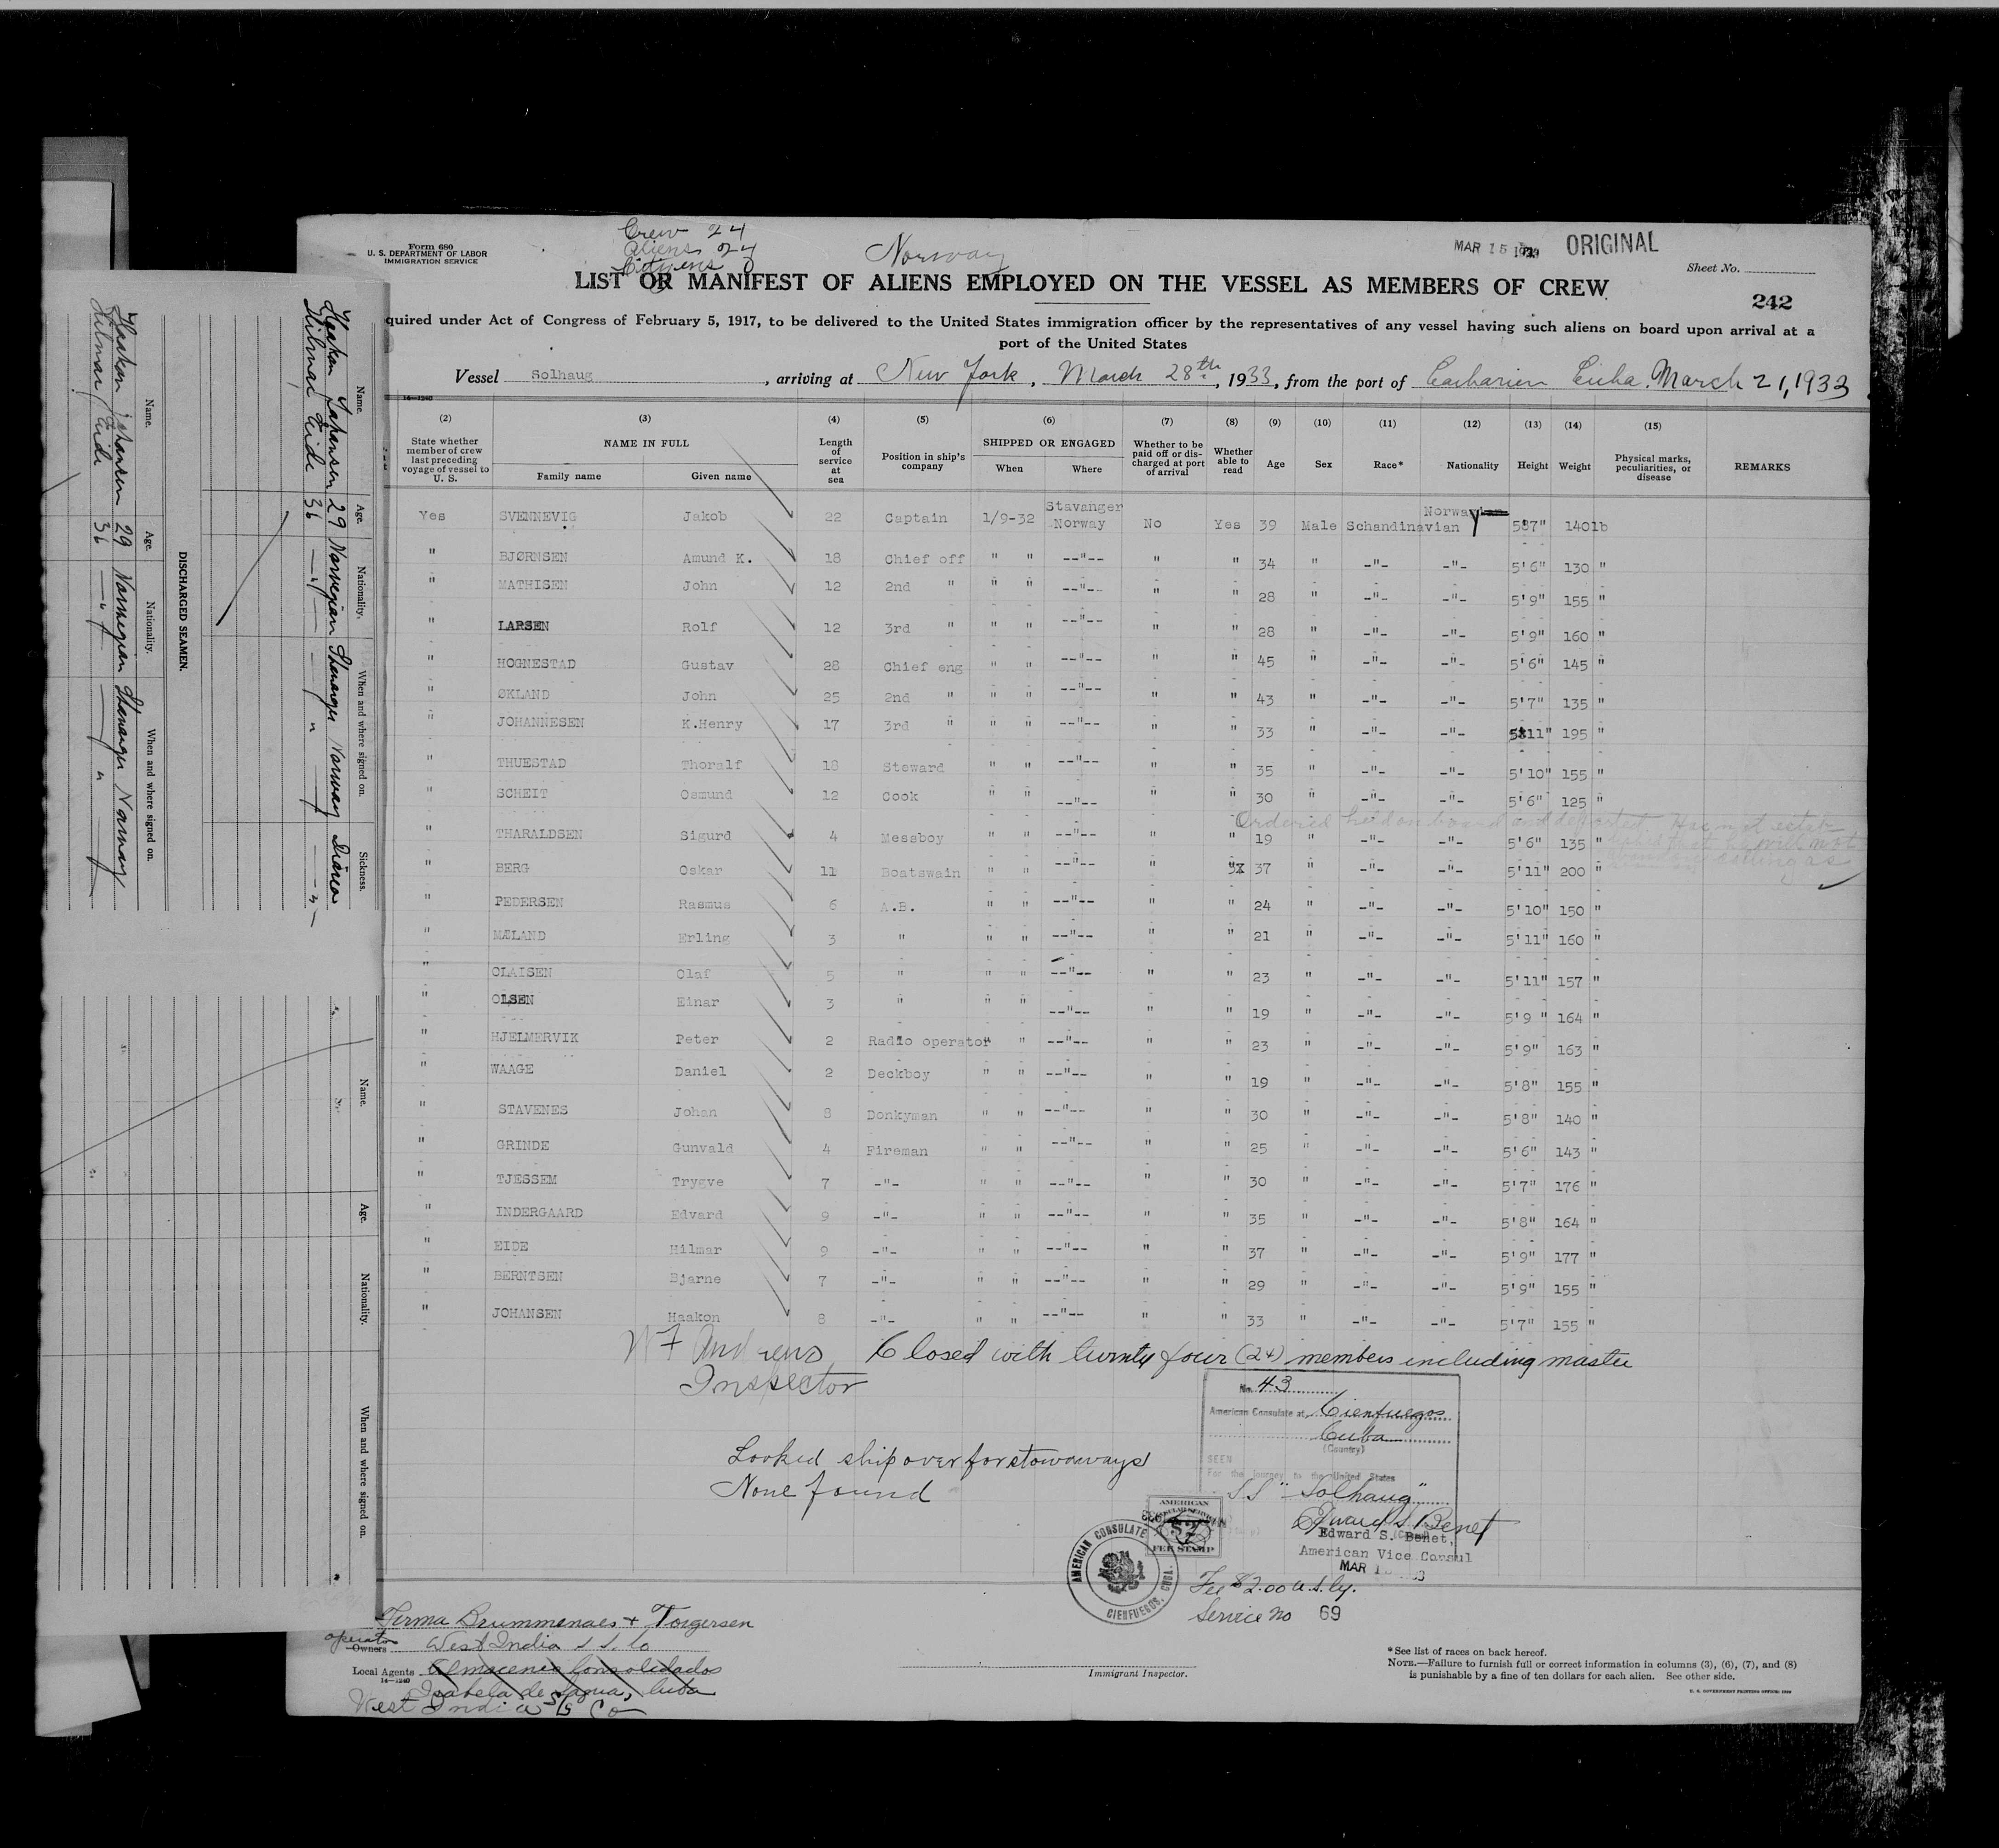 Form 680
U. S. DEPARTMENT OF LABOR
IMMIGRATION SERVICE
Crew 24
Aliens 24
Citizens 0
Norway
MAR 15 1933
ORIGINAL
Sheet No.
LIST OR MANIFEST OF ALIENS EMPLOYED ON THE VESSEL AS MEMBERS OF CREW
242
quired under Act of Congress of February 5, 1917, to be delivered to the United States immigration officer by the representatives of any vessel having such aliens on board upon arrival at a
port of the United States
Vessel Solhaug, arriving at New York, March 28th, 1933, from the port of Caibarien Cuba. March 21, 1933
14-1240
(2) (3) (4) (5) (6) (7) (8) (9) (10) (11) (12) (13) (14) (15)
State whether member of crew last preceding voyage of vessel to U. S. NAME IN FULL Family name Given name Length of service at sea Position in ship's company SHIPPED OR ENGAGED When Where Whether to be paid off or discharged at port of arrival Whether able to read Age Sex Race* Nationality Height Weight Physical marks, peculiarities, or disease REMARKS
Yes SVENNEVIG Jakob 22 Captain 1/9-32 Stavanger Norway No Yes 39 Male Schandinavian Norway 5'7" 140lb
" BJØRNSEN Amund K. 18 Chief off " " --"-- " " 34 " -"- -"- 5'6" 130 "
" MATHISEN John 12 2nd " " " --"-- " " 28 " -"- -"- 5'9" 155 "
" LARSEN Rolf 12 3rd " " " --"-- " " 28 " -"- -"- 5'9" 160 "
" HOGNESTAD Gustav 28 Chief eng " " --"-- " " 45 " -"- -"- 5'6" 145 "
" ØKLAND John 25 2nd " " " --"-- " " 43 " -"- -"- 5'7" 135 "
" JOHANNESEN K.Henry 17 3rd " " " --"-- " " 33 " -"- -"- 5'11" 195 "
" THUESTAD Thoralf 18 Steward " " --"-- " " 35 " -"- -"- 5'10" 155 "
" SCHEIT Osmund 12 Cook " " --"-- " " 30 " -"- -"- 5'6" 125 "
Ordered held on board and departed. Has not estab
" THARALDSEN Sigurd 4 Messboy " " --"-- " " 19 " -"- -"- 5'6" 135 "
" BERG Oskar 11 Boatswain " " --"-- " " 37 " -"- -"- 5'11" 200 "
" PEDERSEN Rasmus 6 A.B. " " --"-- " " 24 " -"- -"- 5'10" 150 "
" MÆLAND Erling 3 " " " --"-- " " 21 " -"- -"- 5'11" 160 "
" CLAISEN Olaf 5 " " " --"-- " " 23 " -"- -"- 5'11" 157 "
" OLSEN Einar 3 " " " --"-- " " 19 " -"- -"- 5'9 " 164 "
" HJELMERVIK Peter 2 Radio operator " --"-- " " 23 " -"- -"- 5'9" 163 "
" WAAGE Daniel 2 Deckboy " " --"-- " " 19 " -"- -"- 5'8" 155 "
" STAVENES Johan 8 Donkyman " " --"-- " " 30 " -"- -"- 5'8" 140 "
" GRINDE Gunvald 4 Fireman " " --"-- " " 25 " -"- -"- 5'6" 143 "
" TJESSEM Trygve 7 -"- " " --"-- " " 30 " -"- -"- 5'7" 176 "
" INDERGAARD Edvard 9 -"- " " --"-- " " 35 " -"- -"- 5'8" 164 "
" EIDE Hilmar 9 -"- " " --"-- " " 37 " -"- -"- 5'9" 177 "
" BERNTSEN Bjarne 7 -"- " " --"-- " " 29 " -"- -"- 5'9" 155 "
" JOHANSEN Haakon 8 -"- " " --"-- " " 33 " -"- -"- 5'7" 155 "
W F Andrews Closed with twenty four (24) members including master
Inspector
No. 43
American Consulate at Cienfuegos
Cuba
(Country)
SEEN
For the journey to the United States
SS "Solhaug"
Looked ship over for stowaways
None found
Edward S. Benet
Edward S. Benet,
American Vice Consul
MAR
AMERICAN
FEE STAMP
AMERICAN CONSULATE
CIENFUEGOS, CUBA.
Fee $2.00 U.S.Cy.
Service No 69
Firma Brummenaes + Torgersen
operator
Owners West India S.S. Co
Local Agents Almacenes Consolidados
14-1240
Isabela de Sagua, Cuba
West India SS Co
Immigrant Inspector.
*See list of races on back hereof.
NOTE.—Failure to furnish full or correct information in columns (3), (6), (7), and (8)
is punishable by a fine of ten dollars for each alien. See other side.
U. S. GOVERNMENT PRINTING OFFICE
Name. Age. Nationality. When and where signed on. Sickness.
Haakon Johansen 29 Norwegian Stavanger Norway
Hilmar Eide 36 -"- "
DISCHARGED SEAMEN.
Name. Age. Nationality. When and where signed on.
Haakon Johansen 29 Norwegian Stavanger Norway
Hilmar Eide 36 -"- "
Name. Age. Nationality. When and where signed on.